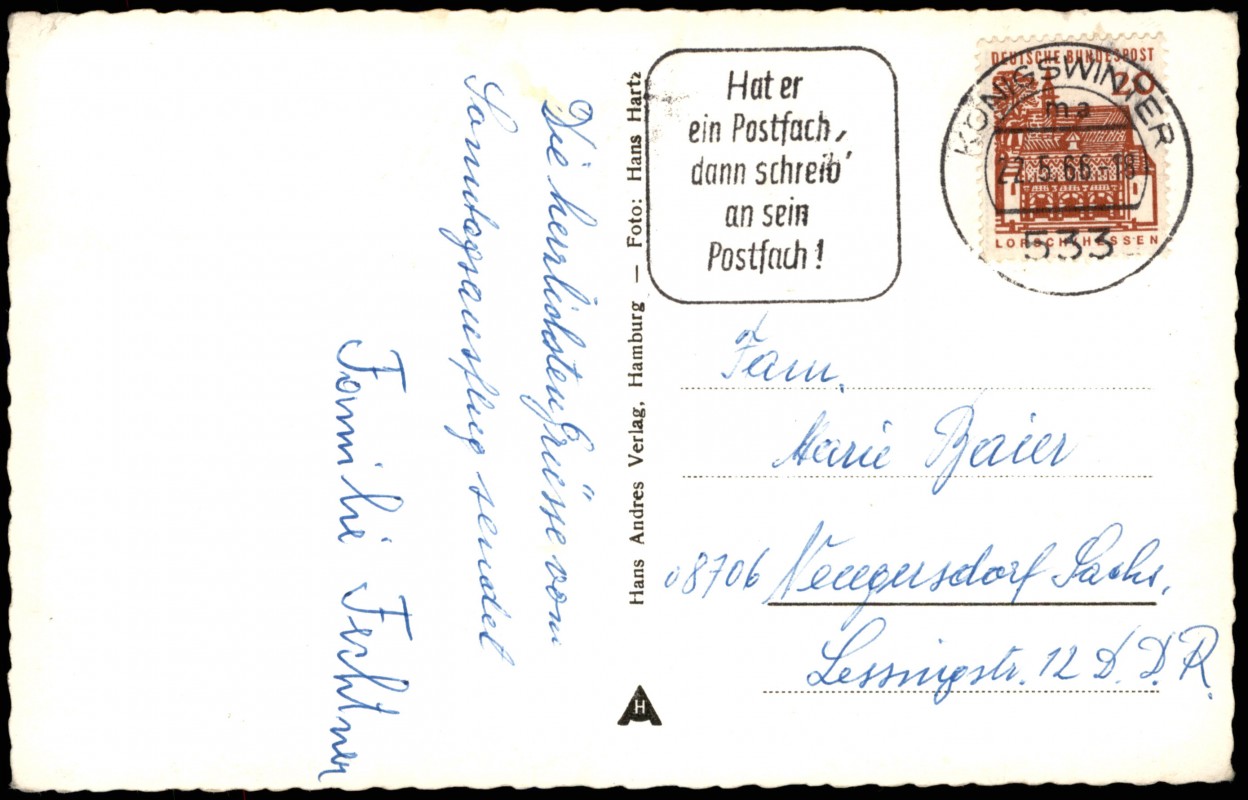 Die herrlichsten Grüsse vom
Sonntagsausflug sendet
Familie Fechtner
Hans Andres Verlag, Hamburg — Foto: Hans Hartz
H
Hat er
ein Postfach,
dann schreib'
an sein
Postfach!
DEUTSCHE BUNDESPOST
20
LORSCH/HESSEN
KÖNIGSWINTER
ma
22.5.66-18
533
Fam.
Marie Baier
08706 Neugersdorf Sachs.
Lessingstr. 12 D.D.R.